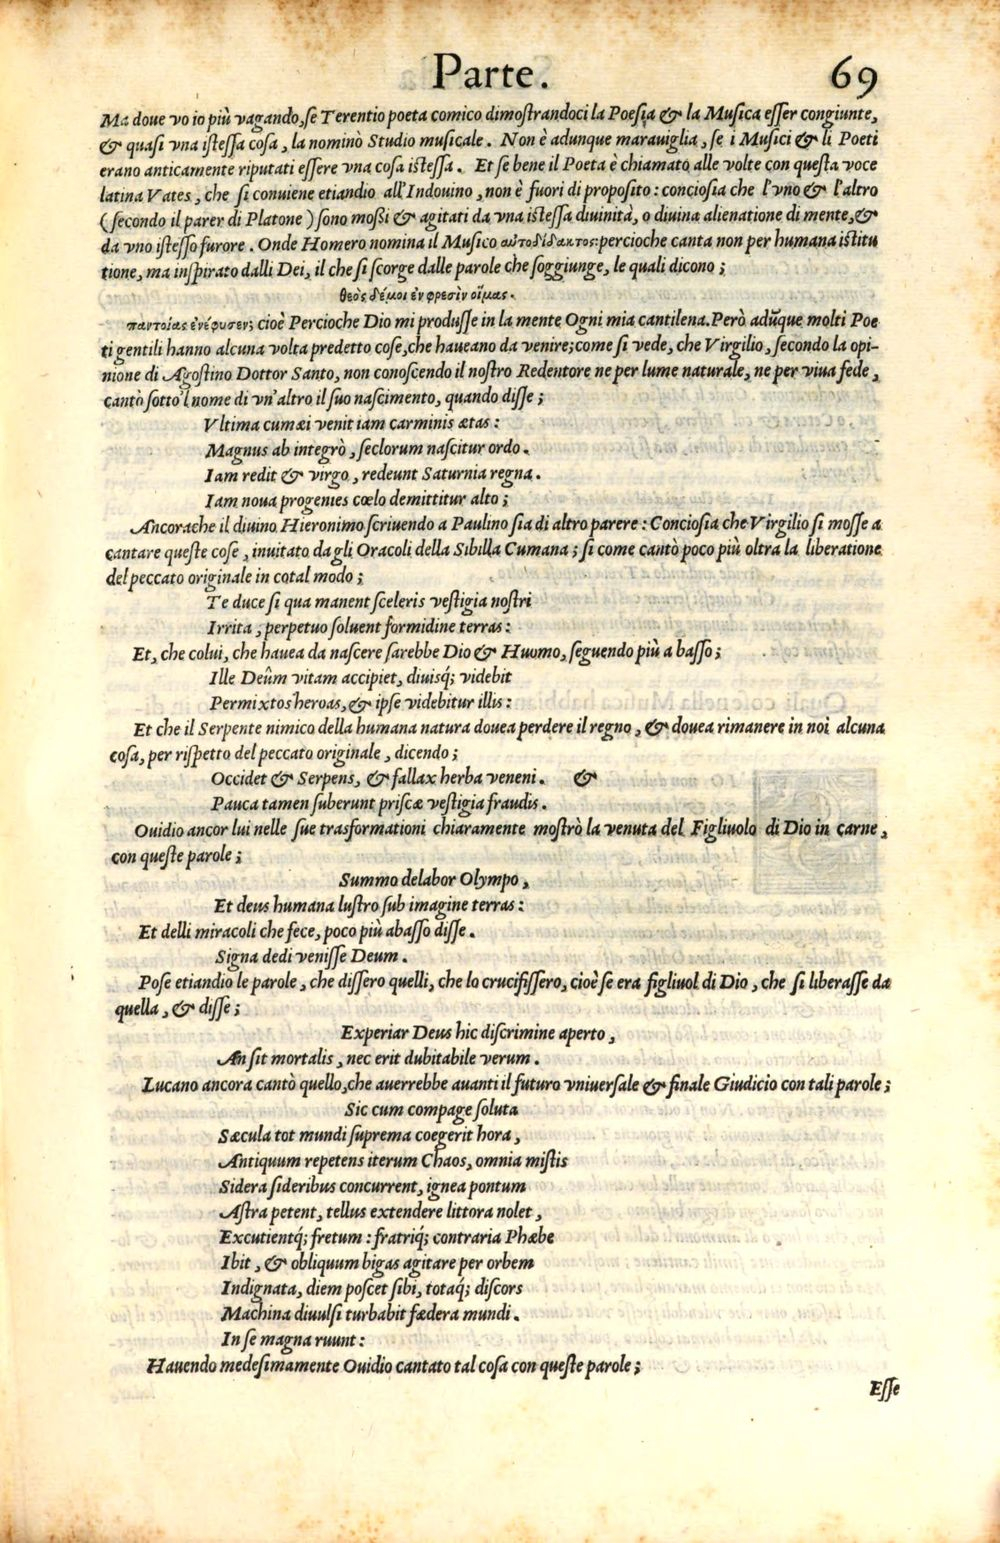 Parte. 69
Ma doue vo io più vagando, se Terentio poeta comico dimostrandoci la Poesia & la Musica esser congiunte,
& quasi vna istessa cosa, la nominò Studio musicale. Non è adunque marauiglia, se i Musici & li Poeti
erano anticamente riputati essere vna cosa istessa. Et se bene il Poeta è chiamato alle volte con questa voce
latina Vates, che si conuiene etiandio all'Indouino, non è fuori di proposito: conciosia che l'vno & l'altro
(secondo il parer di Platone) sono moßi & agitati da vna istessa diuinità, o diuina alienatione di mente, &
da vno istesso furore. Onde Homero nomina il Musico αυτοδίδακτος: percioche canta non per humana istitu
tione, ma inspirato dalli Dei, il che si scorge dalle parole che soggiunge, le quali dicono;
θεὸς δέμοι ἐν φρεσὶν οἴμας.
παντοίας ἐνέφυσεν; cioè Percioche Dio mi produsse in la mente Ogni mia cantilena. Però adũque molti Poe
ti gentili hanno alcuna volta predetto cose, che haueano da venire; come si vede, che Virgilio, secondo la opi-
nione di Agostino Dottor Santo, non conoscendo il nostro Redentore ne per lume naturale, ne per viua fede,
cantò sotto'l nome di vn'altro il suo nascimento, quando disse;
Vltima cumæi venit iam carminis ætas:
Magnus ab integrò, seclorum nascitur ordo.
Iam redit & virgo, redeunt Saturnia regna.
Iam noua progenies cœlo demittitur alto;
Ancorache il diuino Hieronimo scriuendo a Paulino sia di altro parere: Conciosia che Virgilio si mosse a
cantare queste cose, inuitato dagli Oracoli della Sibilla Cumana; si come cantò poco più oltra la liberatione
del peccato originale in cotal modo;
Te duce si qua manent sceleris vestigia nostri
Irrita, perpetuo soluent formidine terras:
Et, che colui, che hauea da nascere sarebbe Dio & Huomo, seguendo più a basso;
Ille Deûm vitam accipiet, diuisq́; videbit
Permixtos heroas, & ipse videbitur illis:
Et che il Serpente nimico della humana natura douea perdere il regno, & douea rimanere in noi alcuna
cosa, per rispetto del peccato originale, dicendo;
Occidet & Serpens, & fallax herba veneni. &
Pauca tamen suberunt priscæ vestigia fraudis.
Ouidio ancor lui nelle sue trasformationi chiaramente mostrò la venuta del Figliuolo di Dio in carne,
con queste parole;
Summo delabor Olympo,
Et deus humana lustro sub imagine terras:
Et delli miracoli che fece, poco più abasso disse.
Signa dedi venisse Deum.
Pose etiandio le parole, che dissero quelli, che lo crucifissero, cioè se era figliuol di Dio, che si liberasse da
quella, & disse;
Experiar Deus hic discrimine aperto,
An sit mortalis, nec erit dubitabile verum.
Lucano ancora cantò quello, che auerrebbe auanti il futuro vniuersale & finale Giudicio con tali parole;
Sic cum compage soluta
Sæcula tot mundi suprema coegerit hora,
Antiquum repetens iterum Chaos, omnia mistis
Sidera sideribus concurrent, ignea pontum
Astra petent, tellus extendere littora nolet,
Excutientq́; fretum: fratriq́; contraria Phœbe
Ibit, & obliquum bigas agitare per orbem
Indignata, diem poscet sibi, totaq́; discors
Machina diuulsi turbabit fædera mundi.
In se magna ruunt:
Hauendo medesimamente Ouidio cantato tal cosa con queste parole;
Esse